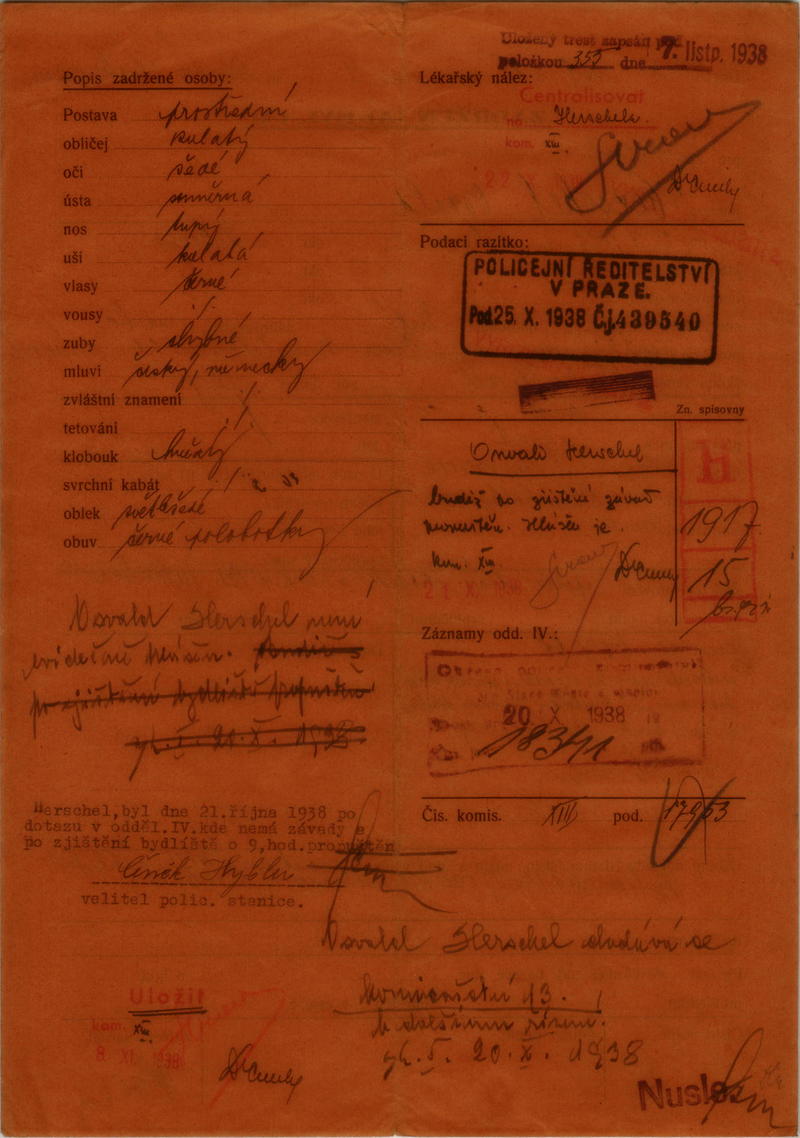 Popis zadržené osoby:
Postava prostřední
obličej kulatý
oči šedé
ústa souměrná
nos tupý
uši kulatá
vlasy černé
vousy ./.
zuby chybné
mluví česky, německy
zvláštní znamení ./.
tetování ./.
klobouk
svrchní kabát ./.
oblek světlešedé
obuv černé polobotky
Osvald Herschel není
evidečně hlášen.
Herschel,byl dne 21.října 1938 po
dotazu v odděl.IV.kde nemá závady a
po zjištění bydliště o 9,hod.propuštěn
velitel polic. stanice.
Uložit
kom. XIII
8 XI. 1938
Uložený trest zapsán pod
položkou 353 dne 7. listp. 1938
Lékařský nález:
Centralisovat
na Herschela.
kom. XIII.
22 X
Podací razítko:
POLICEJNÍ ŘEDITELSTVÍ
V PRAZE.
Pod. 25. X. 1938 Č.j. 439540
Zn. spisovny
H
1917
15
Osvald Herschel
budiž po zjištění závad
propuštěn. Hlášen je.
kom. XIII
21 X. 1938
Záznamy odd. IV.:
20 X 1938
18341
Čís. komis. XIII pod. 17963
Osvald Herschel dodává se
komisařství 13.
k dalšímu řízení.
20. X. 1938
Nusle